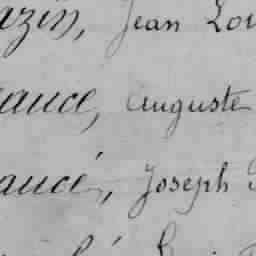 azin, Jean Lou
auce, Auguste
aucé, Joseph